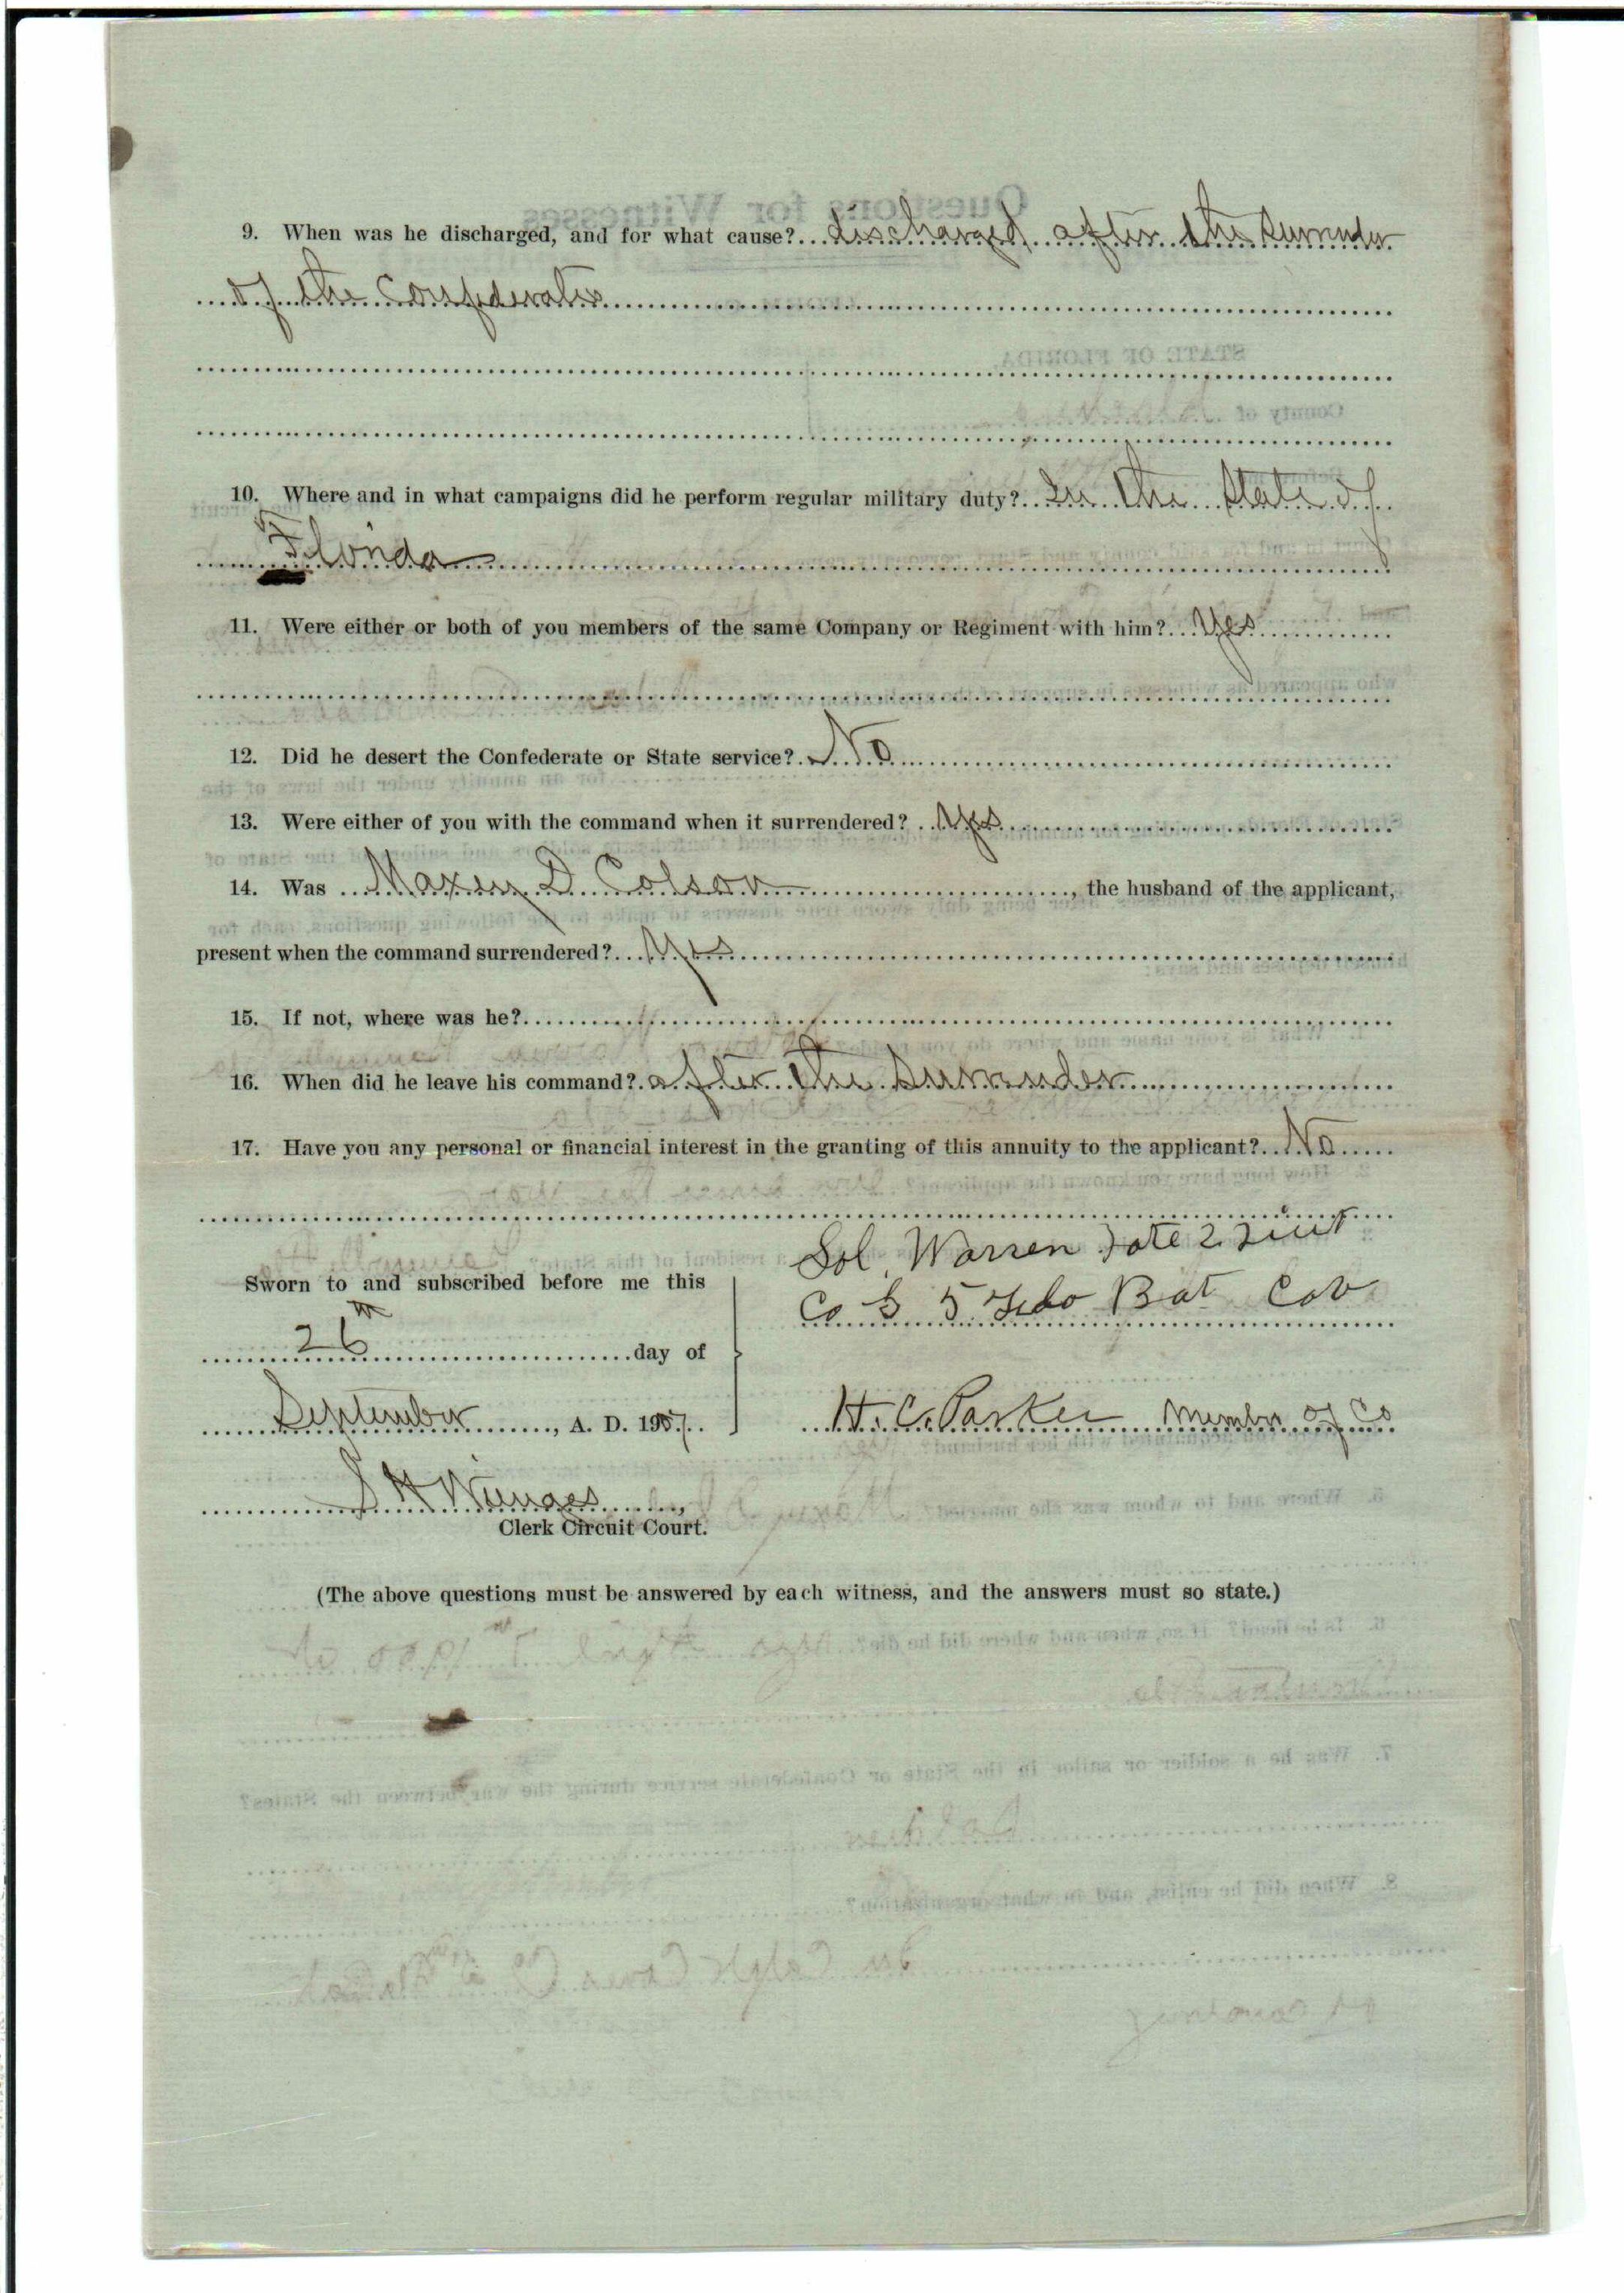 9. When was he discharged, and for what cause? discharged after the Surrender
of the Confederates
10. Where and in what campaigns did he perform regular military duty? In the State of
Florida
11. Were either or both of you members of the same Company or Regiment with him? Yes
12. Did he desert the Confederate or State service? No
13. Were either of you with the command when it surrendered? Yes
14. Was Maxey D Colson, the husband of the applicant,
present when the command surrendered? Yes
15. If not, where was he?
16. When did he leave his command? after the Surrender
17. Have you any personal or financial interest in the granting of this annuity to the applicant? No
Sol. Warren late 2 Lieut
Co G 5 Bat Cav
Sworn to and subscribed before me this
26th day of
September, A. D. 1907.
H. C. Parker Member of Co
S H Wienges,
Clerk Circuit Court.
(The above questions must be answered by each witness, and the answers must so state.)